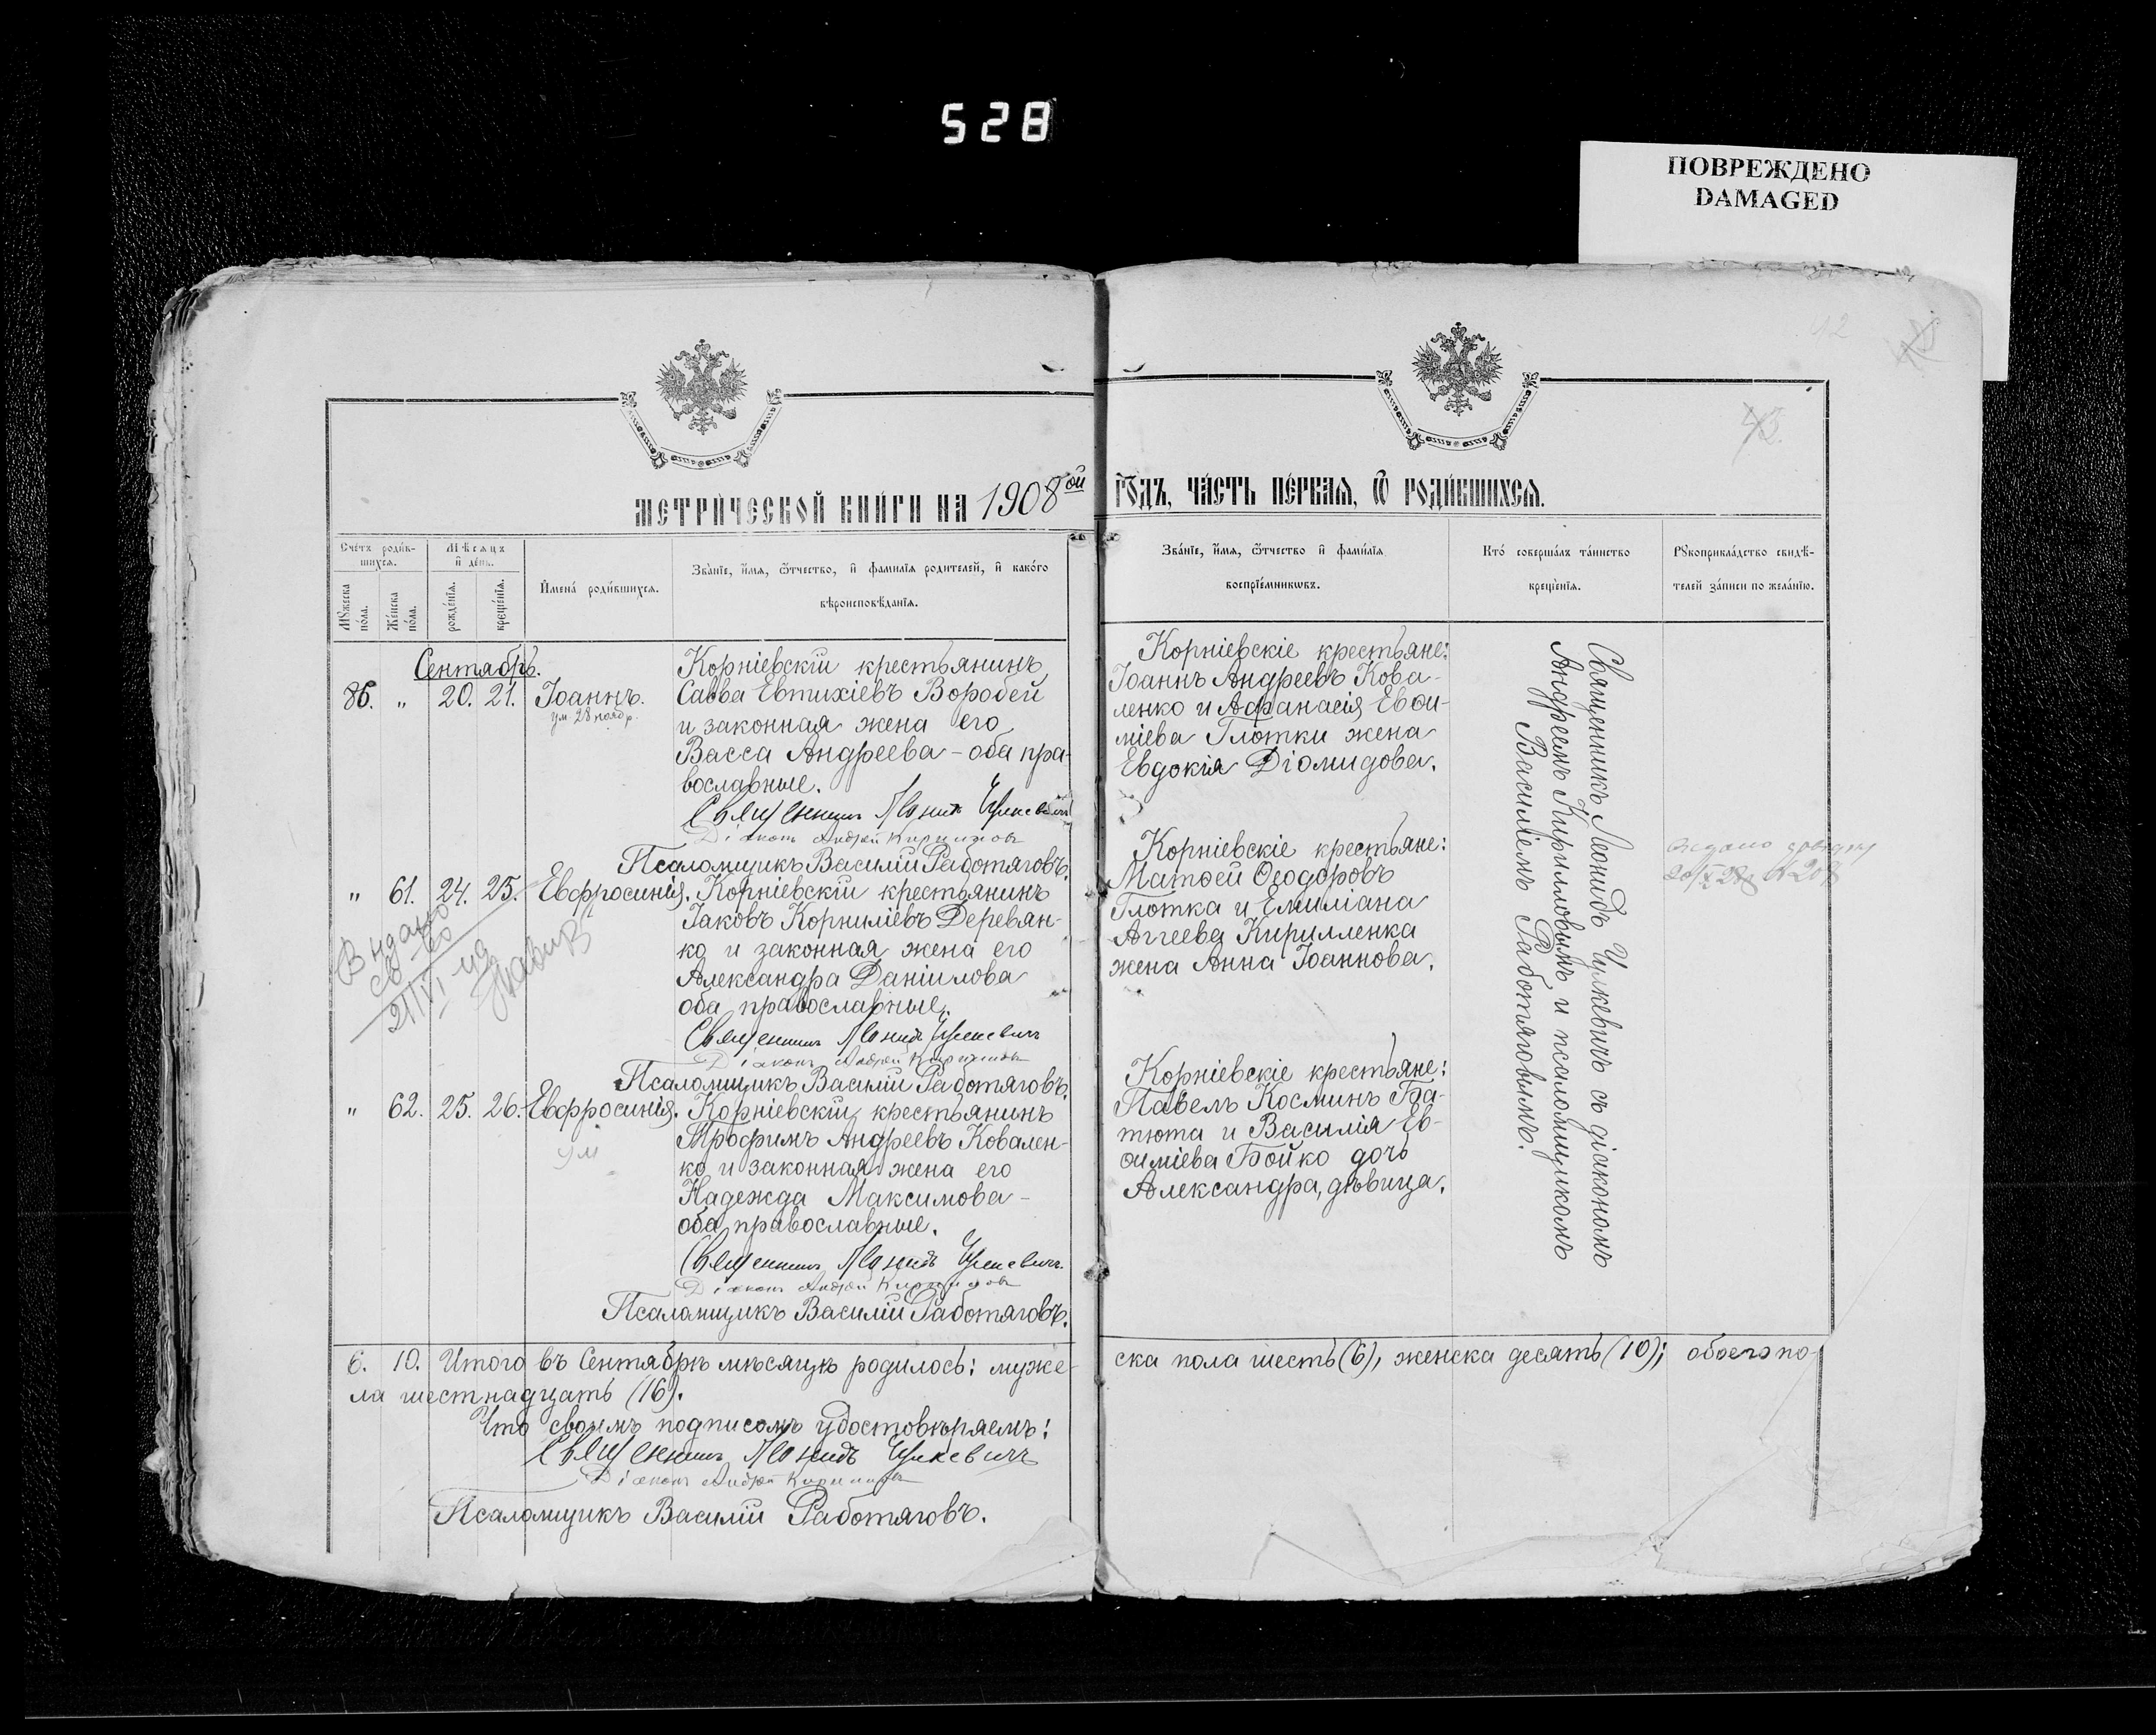 528
ПОВРЕЖДЕНО
DAMAGED
12
МЕТРИ́ЧЕСКОЙ КНИ́ГИ НА 1908ой ГО́ДЪ, ЧА́СТЬ ПЕ́РВАѦ, Ѿ РОДИ́ВШИХСѦ.
Сче́тъ роди́в-
шихсѧ.
Мꙋ́жеска
по́ла.
Же́нска
по́ла.
Мѣ́сѧцъ
и҆ де́нь.
рожде́нїѧ.
креще́нїѧ.
И҆мена̀ роди́вшихсѧ.
Зва́нїе, и҆́мѧ, ѻ҆́тчество, и҆ фами́лїѧ роди́телей, и҆ како́гѡ
вѣроисповѣ́данїѧ.
Зва́нїе, и҆́мѧ, ѻ҆́тчество и҆ фами́лїѧ
воспрїе́мникѡвъ.
Кто̀ соверша́лъ та́инство
креще́нїѧ.
Рꙋкоприкла́дство свидѣ́-
телей за́писи по жела́нїю.
Сентябрь.
86. " 20. 21. Іоаннъ.
ум. 28 ноябр.
Корніевскій крестьянинъ
Савва Евтихіевъ Воробей
и законная жена его
Васса Андреева - оба пра-
вославные.
Священникъ Леонидъ Цулкевичъ
Діаконъ Андрей Кирилловъ
Псаломщикъ Василій Работяговъ.
Корніевскіе крестьяне:
Іоаннъ Андреевъ Кова-
ленко и Афанасія Евѳи-
міева Глотки жена
Евдокія Діомидова.
" 61. 24. 25. Евфросинія.
Корніевскій крестьянинъ
Іаковъ Корниліевъ Деревян-
ко и законная жена его
Александра Даніилова
оба православные.
Священникъ Леонидъ Цулкевичъ
Діаконъ Андрей Кирилловъ
Псаломщикъ Василій Работяговъ.
Видано
св-во
21/VI
Корніевскіе крестьяне:
Матѳей Ѳеодоровъ
Глотка и Емиліана
Аггеева Кирилленка
жена Анна Іоаннова.
" 62. 25. 26. Евфросинія.
ум
Корніевскій крестьянинъ
Трофимъ Андреевъ Ковален-
ко и законная жена его
Надежда Максимова -
оба православные.
Священникъ Леонидъ Цулкевичъ
Діаконъ Андрей Кирилловъ
Псаломщикъ Василій Работяговъ.
Корніевскіе крестьяне:
Павелъ Косминъ Ба-
тюта и Василія Ев-
ѳиміева Бойко дочь
Александра, дѣвица.
Священникъ Леонидъ Цулкевичъ съ діакономъ
Андреемъ Кирилловымъ и псаломщикомъ
Василіемъ Работяговымъ.
6. 10. Итого въ Сентябрѣ мѣсяцѣ родилось: муже-
ска пола шесть (6), женска десять (10); обоего по-
ла шестнадцать (16).
Что своимъ подписомъ удостовѣряемъ:
Священникъ Леонидъ Цулкевичъ
Діаконъ Андрей Кирилловъ
Псаломщикъ Василій Работяговъ.